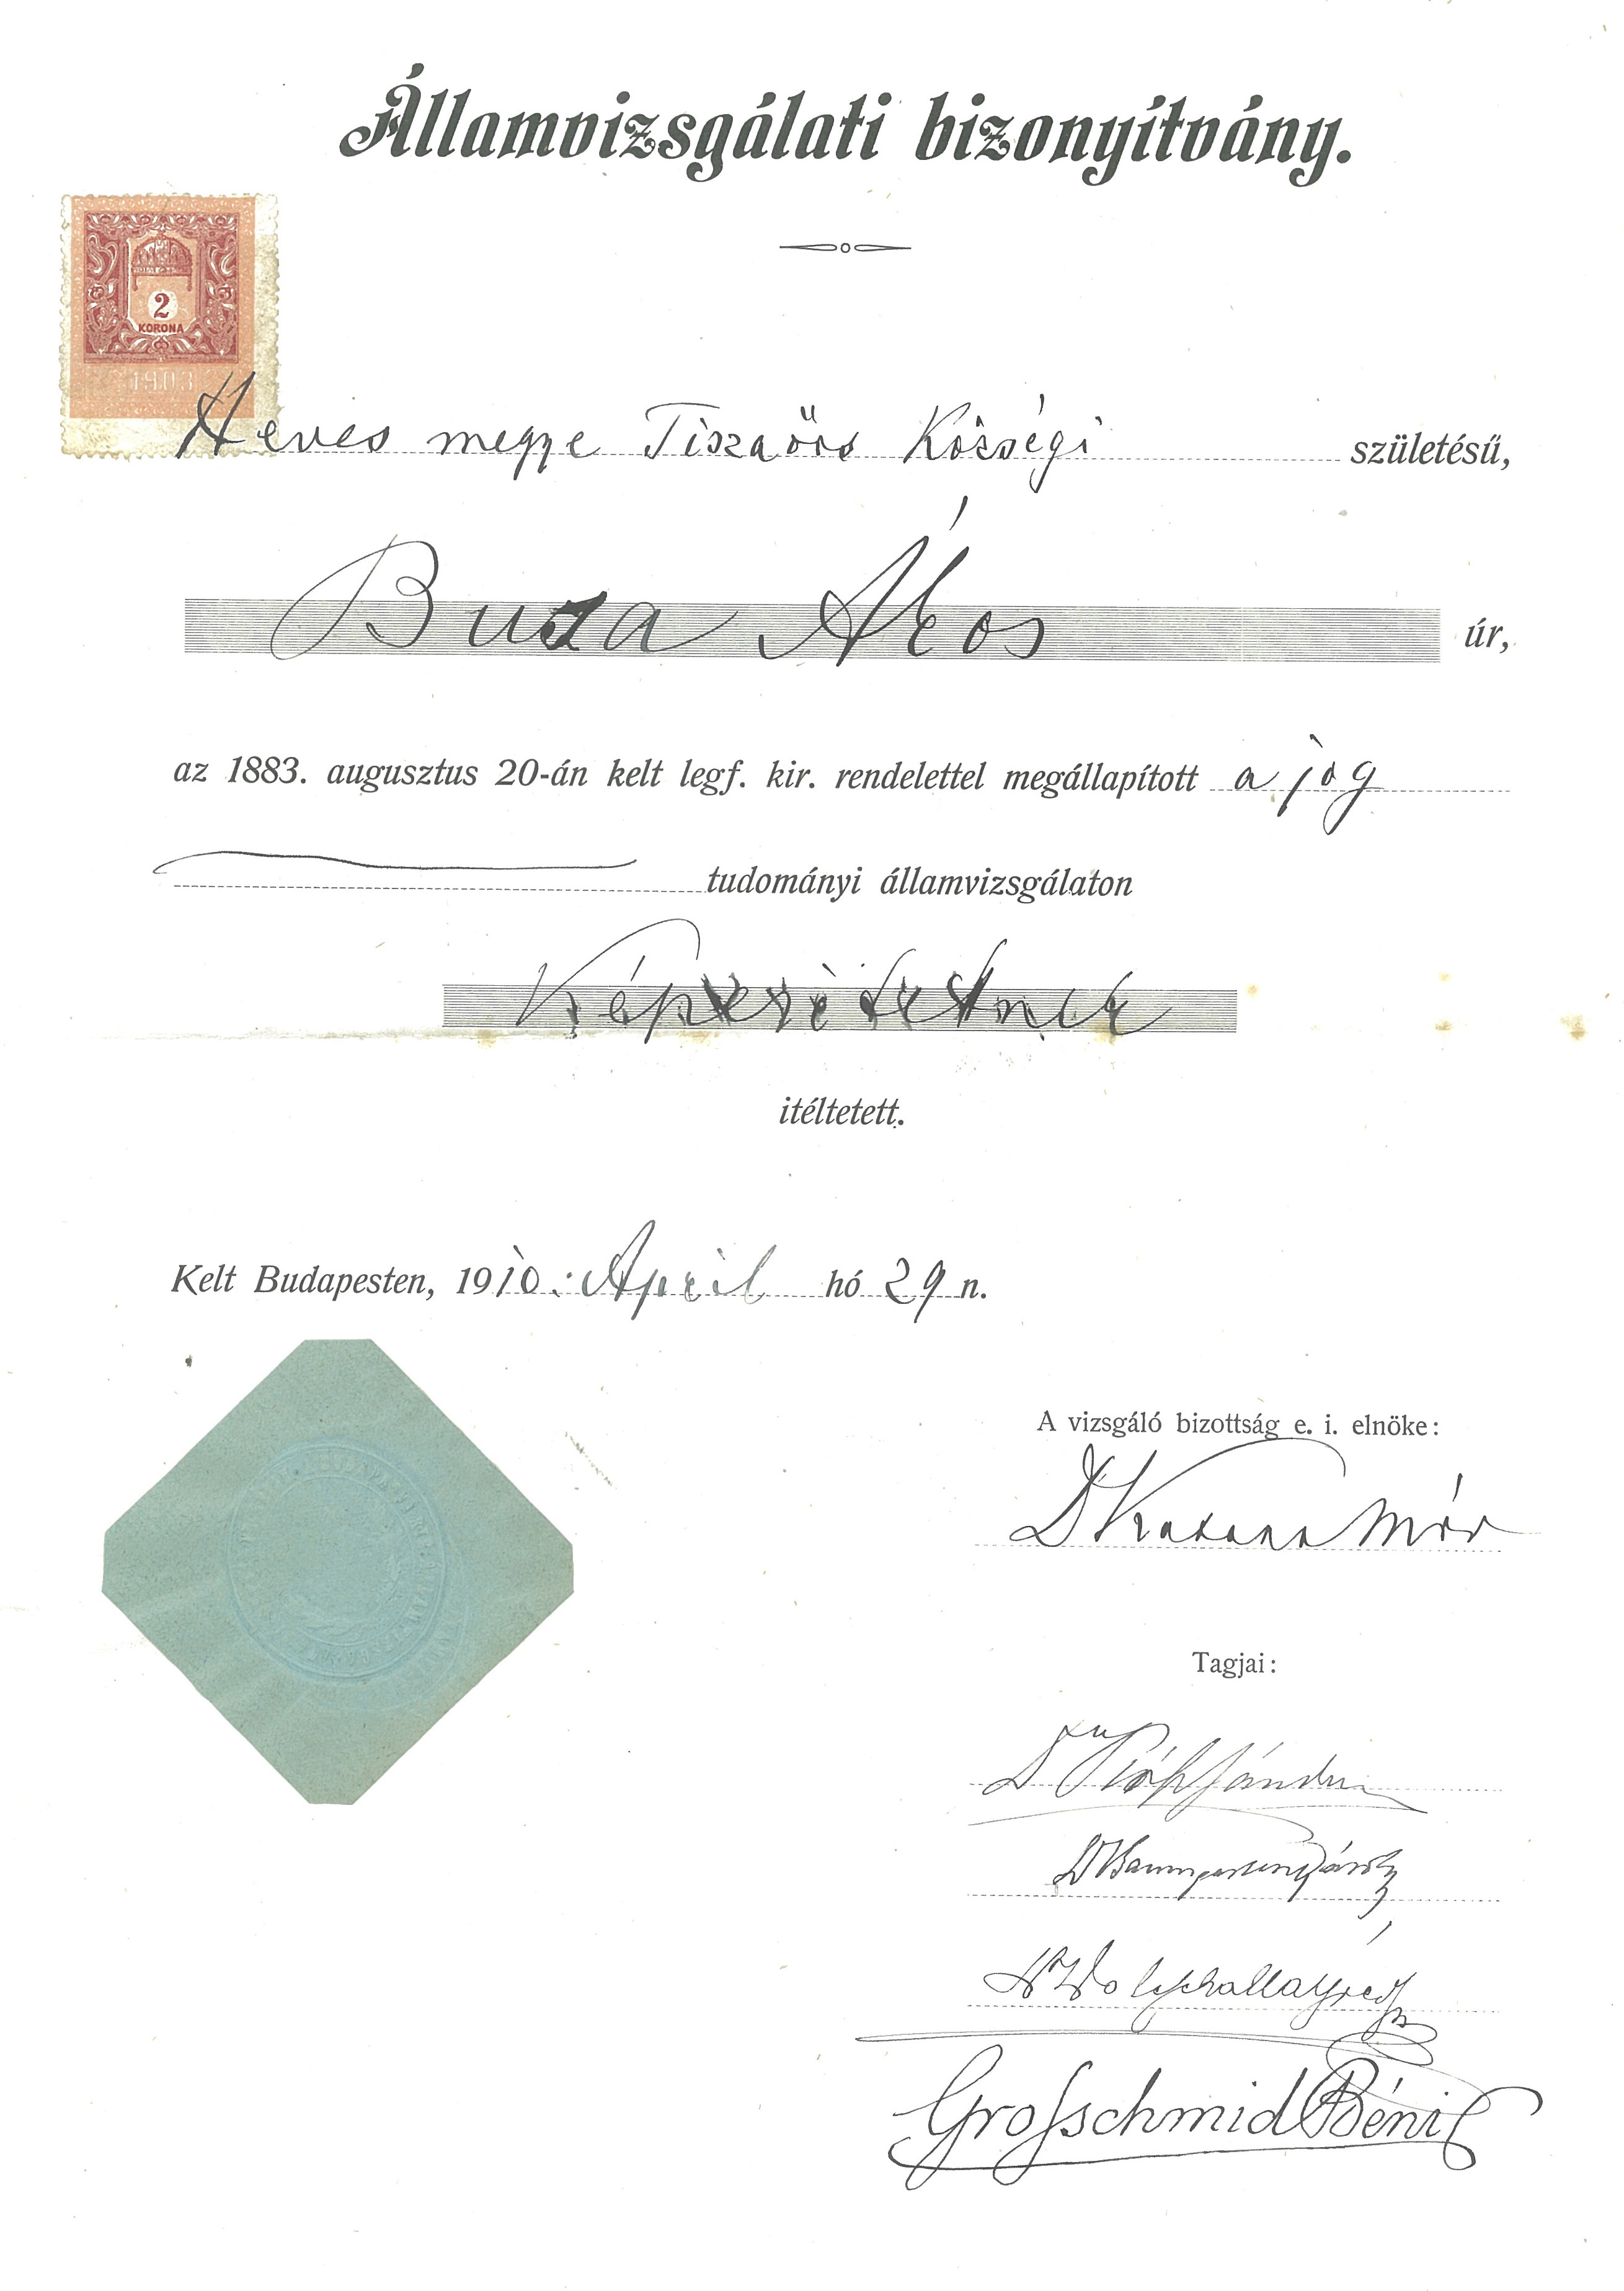 Államvizsgálati bizonyítvány.
2
KORONA
1903
Heves megye Tiszaörs Községi születésű,
Buza Ákos úr,
az 1883. augusztus 20-án kelt legf. kir. rendelettel megállapított a jog
tudományi államvizsgálaton
Képesítettnek
itéltetett.
Kelt Budapesten, 1910. April hó 29 n.
A vizsgáló bizottság e. i. elnöke:
Dr Katona Mór
Tagjai:
Dr Plósz Sándor
Dr Baumgarten Károly
Grosschmid Béni